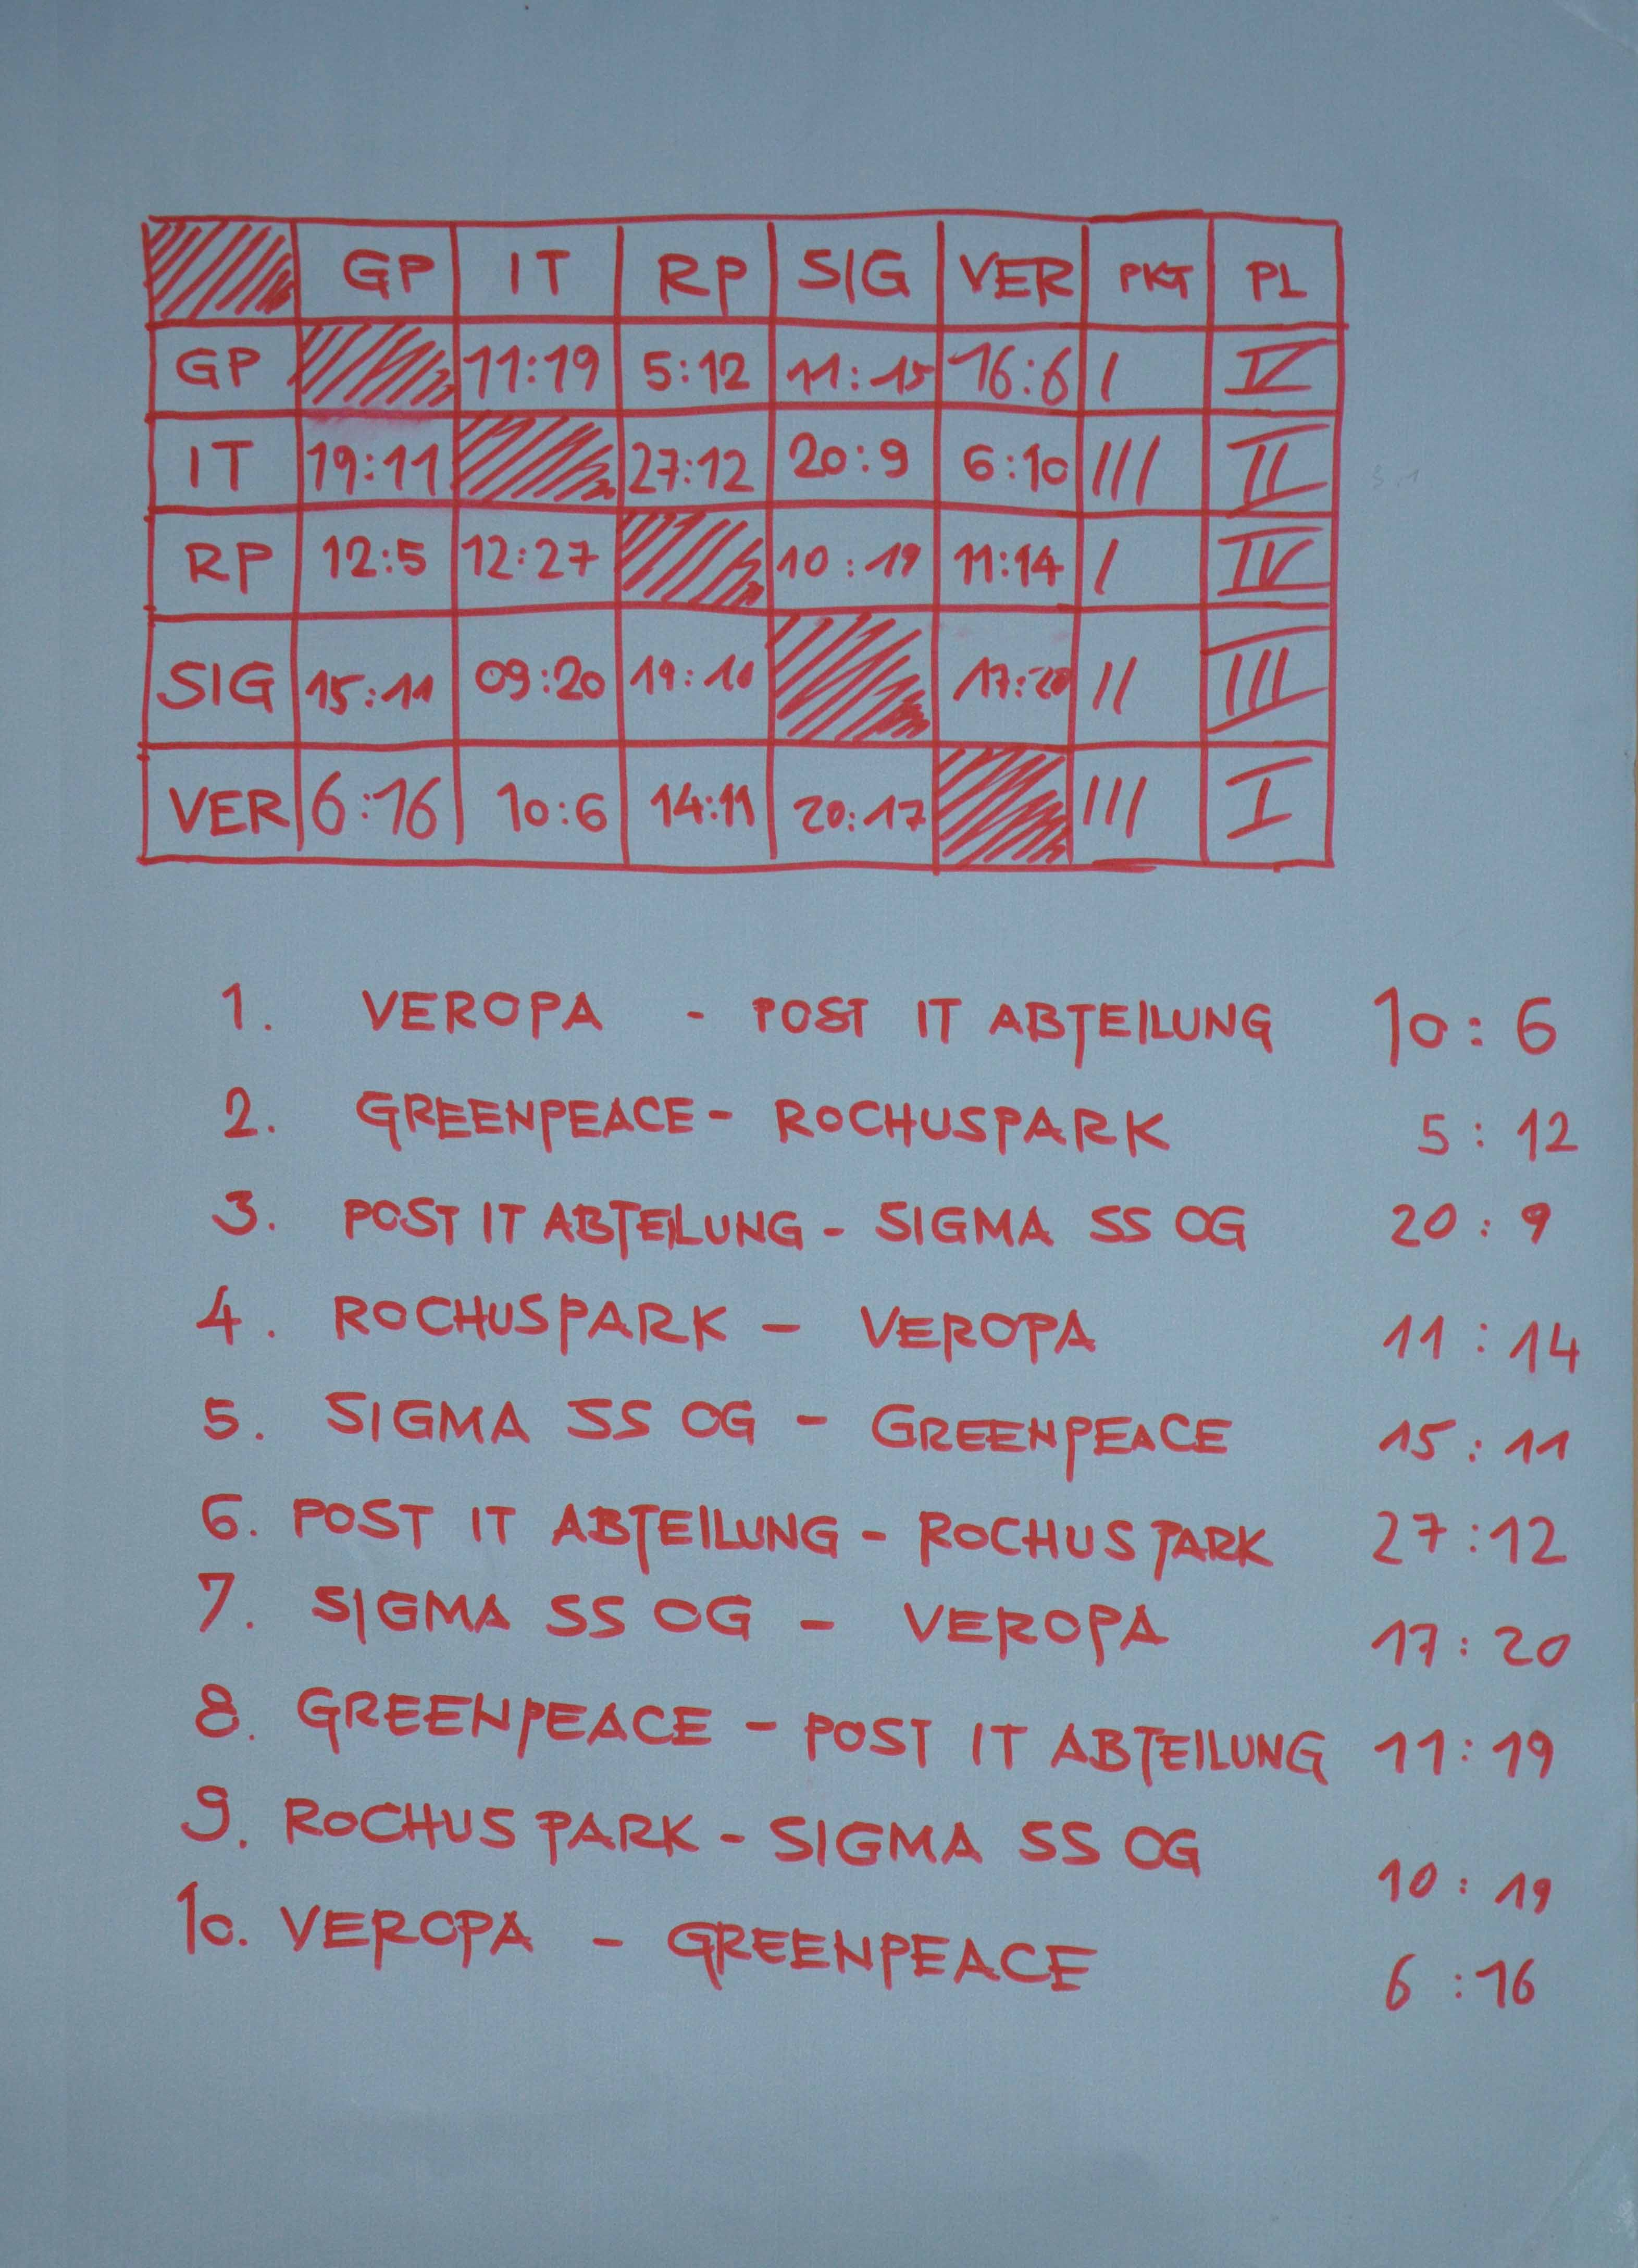 GP IT RP SIG VER PKT PL
GP 11:19 5:12 11:15 16:6 I V
IT 19:11 27:12 20:9 6:10 III II
RP 12:5 12:27 10:19 11:14 I IV
SIG 15:11 09:20 19:10 17:20 II III
VER 6:16 10:6 14:11 20:17 III I
1. VEROPA - POST IT ABTEILUNG 10:6
2. GREENPEACE - ROCHUSPARK 5:12
3. POST IT ABTEILUNG - SIGMA SS OG 20:9
4. ROCHUSPARK - VEROPA 11:14
5. SIGMA SS OG - GREENPEACE 15:11
6. POST IT ABTEILUNG - ROCHUSPARK 27:12
7. SIGMA SS OG - VEROPA 17:20
8. GREENPEACE - POST IT ABTEILUNG 11:19
9. ROCHUSPARK - SIGMA SS OG 10:19
10. VEROPA - GREENPEACE 6:16